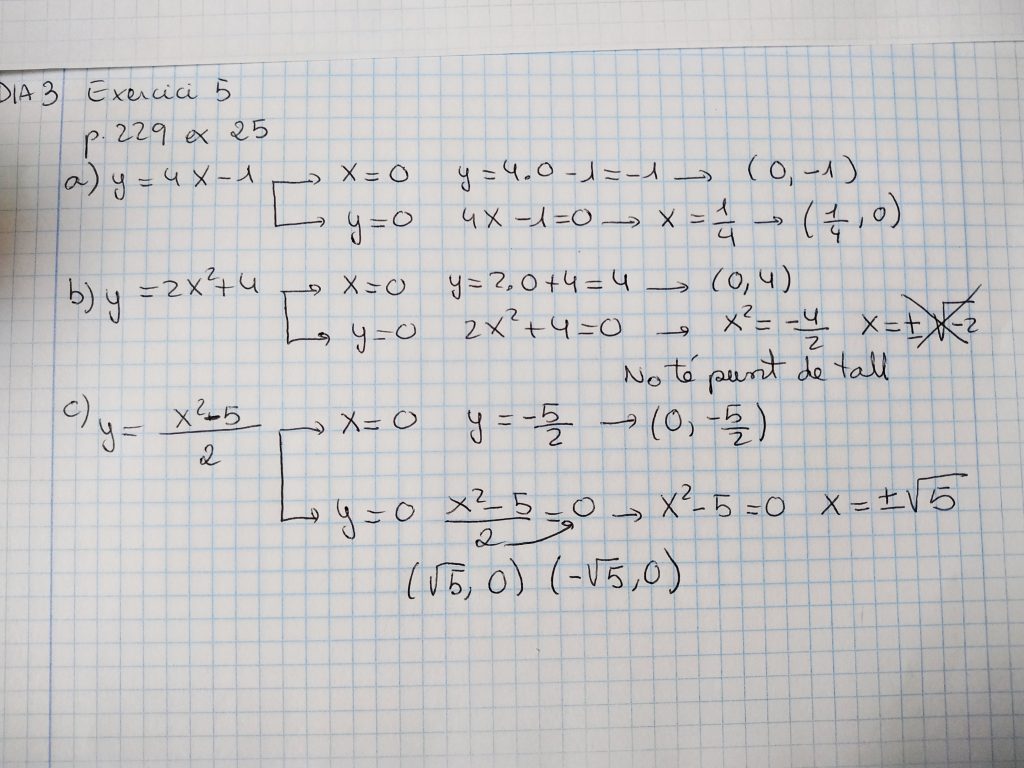 DIA 3 Exercici 5
p. 229 ex 25
a) y = 4x - 1 → x = 0 y = 4·0 - 1 = -1 → (0, -1)
→ y = 0 4x - 1 = 0 → x = 1/4 → (1/4, 0)
b) y = 2x² + 4 → x = 0 y = 2·0 + 4 = 4 → (0, 4)
→ y = 0 2x² + 4 = 0 → x² = -4/2 x = ±√-2
No té punt de tall
c) y = (x² - 5)/2 → x = 0 y = -5/2 → (0, -5/2)
→ y = 0 (x² - 5)/2 = 0 → x² - 5 = 0 x = ±√5
(√5, 0) (-√5, 0)